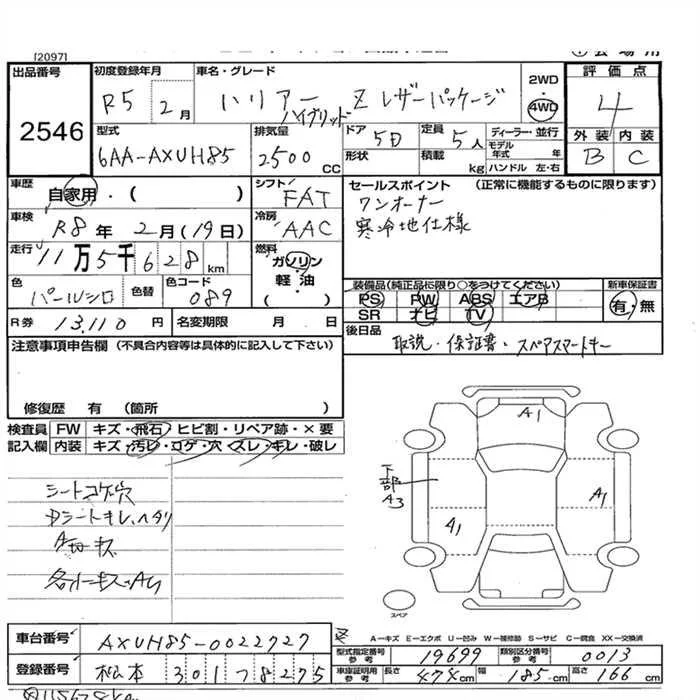 [2097]
出品番号 初度登録年月 車名・グレード 2WD 評価点
2546 R5 2月 ハリアー ハイブリッド Z レザーパッケージ 4WD 4
型式 排気量 ドア 5D 定員 5人 ディーラー・並行 外装 内装
6AA-AXUH85 2500 CC 形状 積載 kg モデル年式 年 ハンドル 左・右 B C
車歴 自家用・( ) シフト FAT セールスポイント (正常に機能するものに限ります)
車検 R8年 2月(19日) 冷房 AAC ワンオーナー
寒冷地仕様
走行 11万5千628km 燃料 ガソリン 軽油 ・( )
色 パールシロ 色替 色コード 089
装備品(純正品に限り○をつけてください) 新車保証書
PS PW ABS エアB 有・無
SR ナビ TV
R券 13,110円 名変期限 月 日
後日品 取説・保証書・スペアスマートキー
注意事項申告欄(不具合内容等は具体的に記入して下さい)
修復歴 有 (箇所 )
検査員 FW キズ・飛石・ヒビ割・リペア跡・×要
記入欄 内装 キズ・汚レ・コゲ・穴・スレ・キレ・破レ
シートコゲ穴
A1
下部
A3
A1
A1
スペア
A-キズ E-エクボ U-凹み W-補修跡 S-サビ C-腐食 XX-交換済
車台番号 AXUH85-0022727
型式指定番号 参考 19699 類別区分番号 参考 0013
登録番号 松本 301 78275
車庫証明用 参考 長さ 474cm 幅 185cm 高さ 166cm